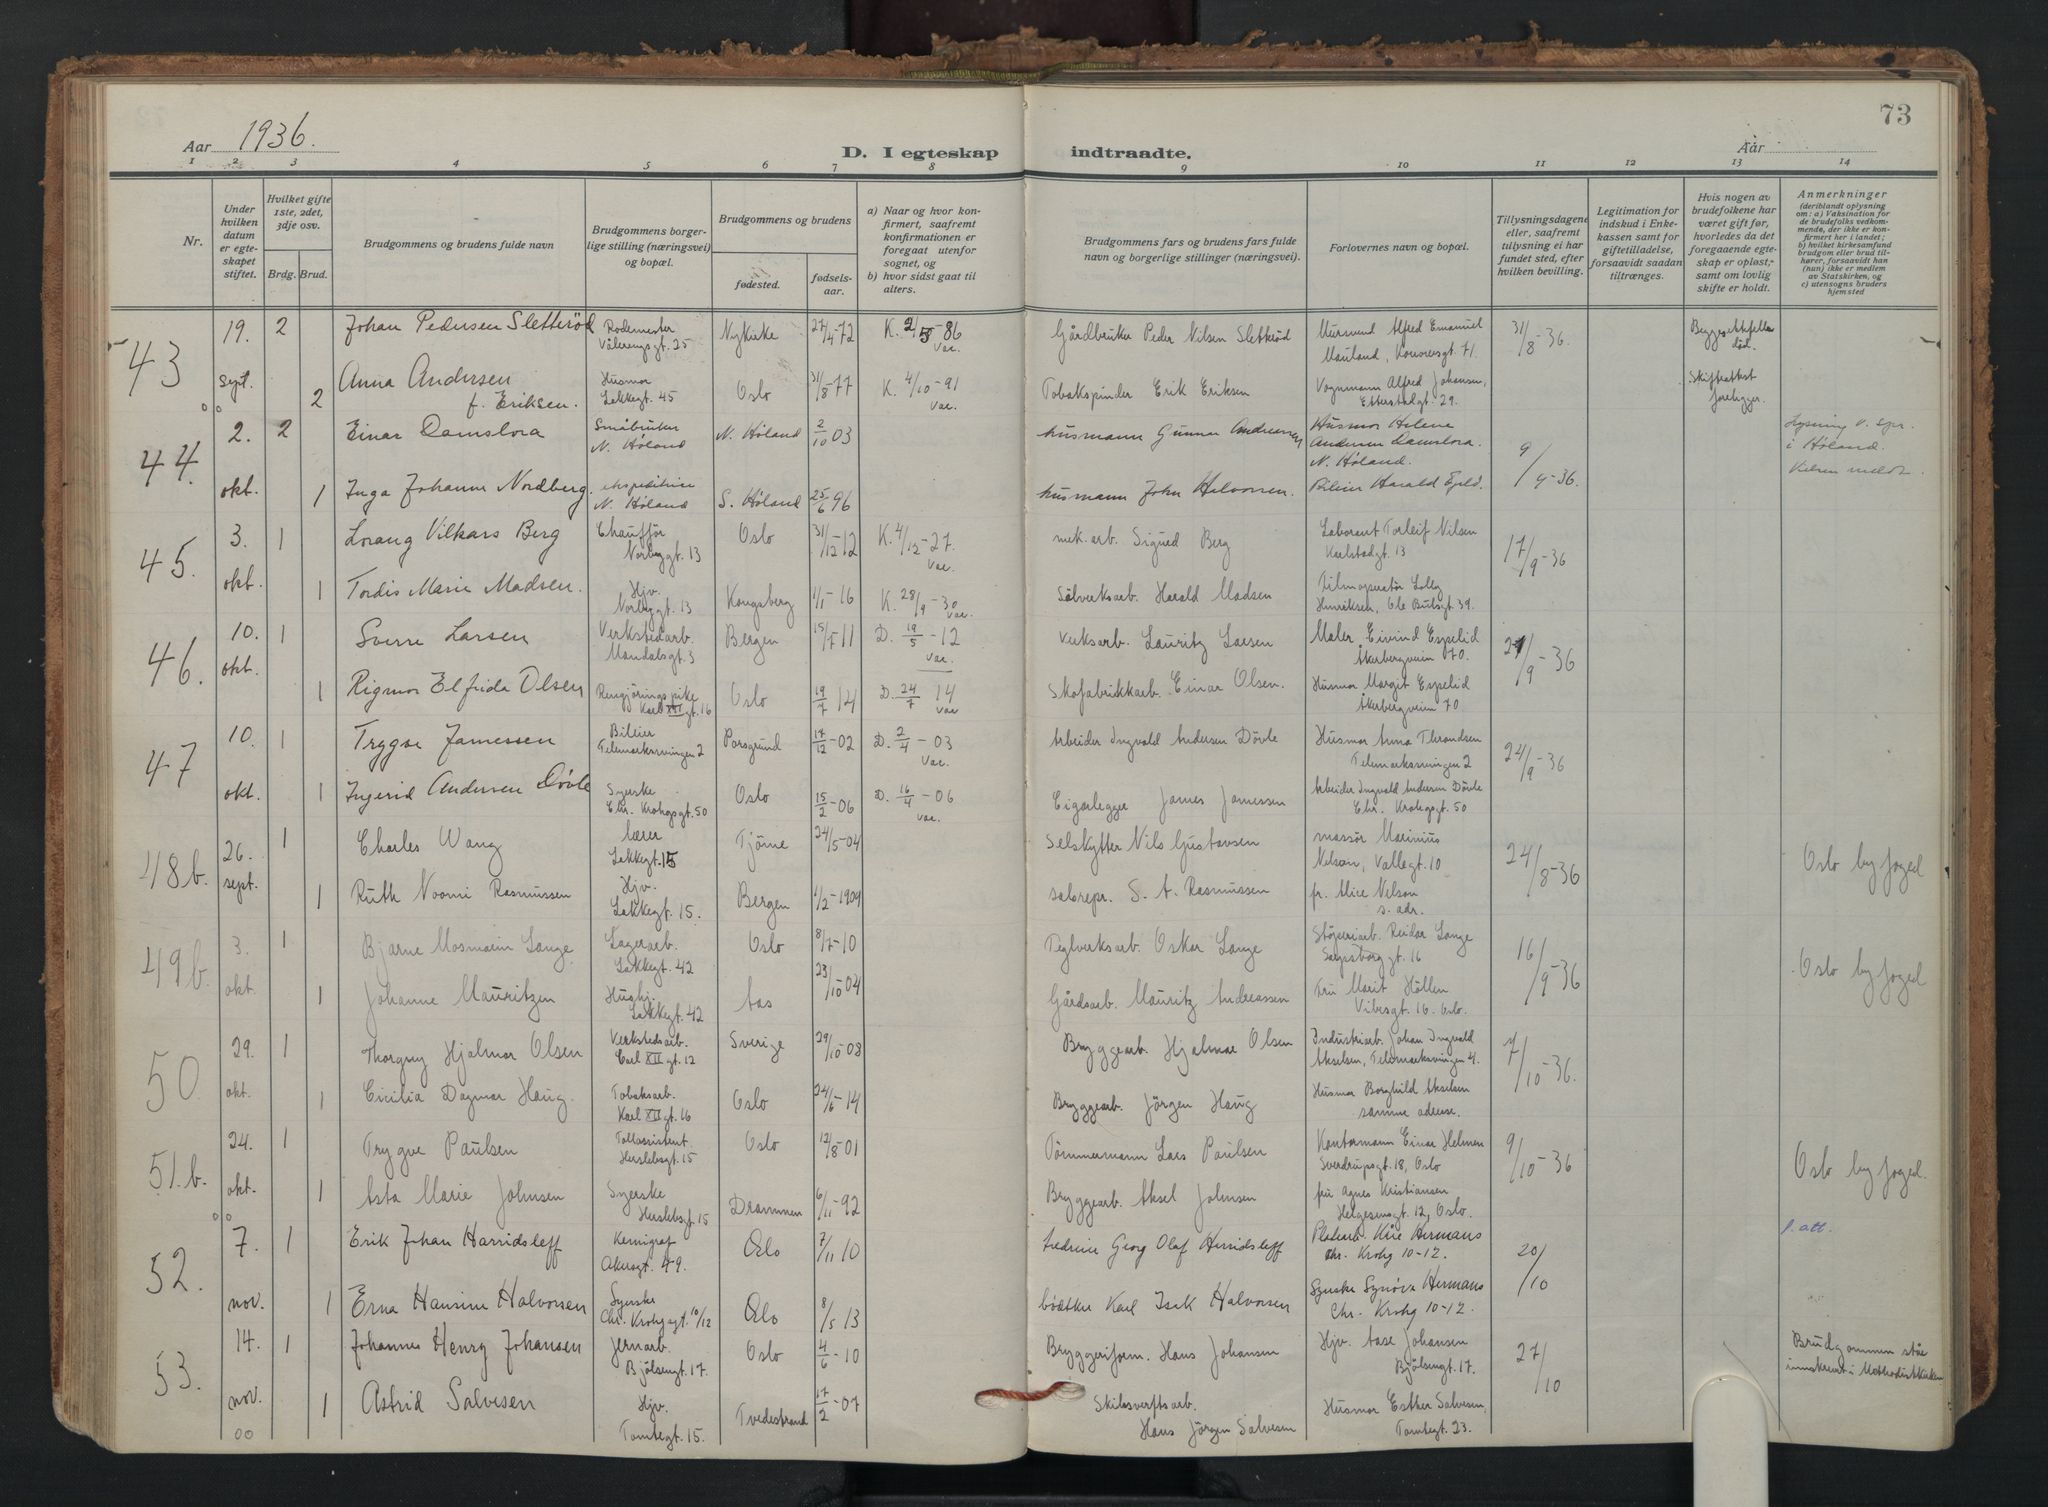 73
Aar 1936.
D. I egteskap indtraadte.
Aar
1 2 3 4 5 6 7 8 9 10 11 12 13 14
Nr.
Under hvilken datum er egteskapet stiftet.
Hvilket gifte 1ste, 2det, 3dje osv.
Brdg. Brud.
Brudgommens og brudens fulde navn
Brudgommens borgerlige stilling (næringsvei) og bopæl.
Brudgommens og brudens
fødested.
fødselsaar.
a) Naar og hvor konfirmert, saafremt konfirmationen er foregaat utenfor sognet, og
b) hvor sidst gaat til alters.
Brudgommens fars og brudens fars fulde navn og borgerlige stillinger (næringsvei).
Forlovernes navn og bopæl.
Tillysningsdagene eller, saafremt tulysning ei har fundet sted, efter hvilken bevilling.
Legitimation for indskud i Enkekassen samt for giftetilladelse, forsaavidt saadan tiltrænges.
Hvis nogen av brudefolkene har været gift før, hvorledes da det foregaaende egteskap er opløst, samt om lovlig skifte er holdt.
Anmerkninger
(deriblandt oplysning om: a) Vaksination for de brudefolks vedkommende, der ikke er konfirmert her i landet; b) hvilket kirkesamfund brudgom eller brud tilhører, forsaavidt han (hun) ikke er medlem av Statskirken, og c) utensogns bruders hjemsted
43
19. 2 Johan Pedersen Sletterød Rodemester Vålerengsgt. 25 Nykirke 27/4-72 K. 2/5-86 Vac. Gårdbruker Peder Nilsen Sletterød Murmand Alfred Emanuel Mauland, Konowsgt. 71. 31/8-36.
sept. 2 Anna Andersen f. Eriksen. Husmor Lakkegt. 45 Oslo 31/8-77 K. 4/10-91 Vac. Tobakspinder Erik Eriksen Vognmann Alfred Johansen, Etterstadgt. 29. Skifteattest foreligger.
44.
2. 2 Einar Damslora Småbruker N. Høland N. Høland 2/10 03 husmann Gunnar Andreassen Husmor Helene Andersen Damslora. N. Høland. 9/9-36. Lysning v. spr. i Høland.
okt. 1 Inga Johanne Nordberg. ekspeditrise N. Høland S. Høland 25/6 96 husmann John Halvorsen. Bileier Harald
45.
3. 1 Lorang Vilkars Berg Chauffør Norbygt. 13 Oslo 31/12-12 K. 4/12-27. Vac. mek. arb. Sigurd Berg Laborant Torleif Nilsen Karlstadgt. 13 17/9-36
okt. 1 Tordis Marie Madsen. Hjv. Norbygt. 13 Kongsberg 1/1-16 K. 28/9-30 Vac. Sølverksarb. Harald Madsen Filmoperatør Lolly Henriksen, Ole Bulsgt. 39.
46.
10. 1 Sverre Larsen Verkstedarb. Mandalsgt. 3 Bergen 15/7-11 D. 19/5-12 Vac. Verksarb. Lauritz Larsen Maler Eivind Espelid Åkerbergveien 70. 21/9-36
okt. 1 Rigmor Elfrida Olsen Rengjøringspike Karl XII gt. 16 Oslo 19/7 14 D. 24/7 14 Vac Skofabrikkarb. Einar Olsen. Husmor Margit Espelid Åkerbergveien 70
47
10. 1 Trygve Jamessen Bileier Telemarksvingen 2 Porsgrund 17/12-02 D. 2/4-03 Vac. Arbeider Ingvald Andersen Dövle Husmor Anna Thrandsen Telemarksvingen 2 24/9-36
okt. 1 Ingerid Andersen Dövle Syerske Chr. Krohgsgt. 50 Oslo 15/2-06 D. 16/4-06 Vac. Cigarlegger James Jamessen Arbeider Ingvald Andersen Dövle Chr. Krohgsgt. 50
48b.
26. 1 Charles Wang lærer Lakkegt. 15 Tjöme 24/5-04 Selskytter Nils Gustavsen massør Marinius Nelson, Vallegt. 10 24/8-36 Oslo byfoged
sept. 1 Ruth Noomi Rasmussen Hjv. Lakkegt. 15. Bergen 1/2-1909 salsrepr. S. A. Rasmussen fr. Alice Nelson s. adr.
49b.
3. 1 Bjarne Mosmann Lange. Lagerarb. Lakkegt. 42 Oslo 8/7-10 Teglverksarb. Oskar Lange Støperiarb. Reidar Lange Sarpsborggt. 16 16/9-36 Oslo byfoged
okt. 1 Johanne Mauritzen Hushj. Lakkegt. 42 Aas 23/10-04 Gårdsarb. Mauritz Andreassen Fru Marit Hollen Vibesgt. 16. Oslo.
50.
29. 1 Thorgny Hjalmar Olsen Verkstedsarb. Carl XII gt. 12 Sverige 29/10-08 Bryggearb. Hjalmar Olsen Industriarb. Johan Ingvald Akselsen, Telemarksvingen 4. 7/10-36.
okt. 1 Cicilia Dagmar Haug. Tobaksarb. Karl XII gt. 16 Oslo 24/6-14 Bryggearb. Jörgen Haug Husmor Borghild Akselsen samme adresse.
51.b.
24. 1 Trygve Paulsen Tollassistent Herslebsgt. 15 Oslo 12/8-01 Tömmermann Lars Paulsen Kontormann Einar Helmen Sverdrupsgt. 18, Oslo 9/10-36 Oslo byfoged.
okt. 1 Asta Marie Johnsen Syerske Herslebsgt. 15 Drammen 6/11-92 Bryggearb. Aksel Johnsen fru Agnes Kristiansen Helgesensgt. 12, Oslo.
52.
7. 1 Erik Johan Harridsleff Kemigraf Akersgt. 49. Oslo 7/11 10 Georg Olaf Herridsleff Kåre Hermans Chr. Krohg 10-12. 20/10 l. att.
nov. 1 Erna Hansine Halvorsen Syerske Chr. Krohgsgt. 10/12 Oslo 8/5 13 bödtker Karl Isak Halvorsen Syerske Synøve Hermans Chr. Krohg 10-12.
53.
14. 1 Johannes Henry Johansen Jernarb. Bjølsengt. 17. Oslo 4/6-10 Bryggeriform. Hans Johansen Hjv. Aase Johansen Bjølsengt. 17. 27/10 Brudgommen står innskrevet i Methodistkirken
nov. 1 Astrid Salvesen Hjv. Tomtegt. 15. Tvedestrand 17/2-07 Skibsverftsarb. Hans Jörgen Salvesen Husmor Esther Salvesen, Tomtegt. 23.